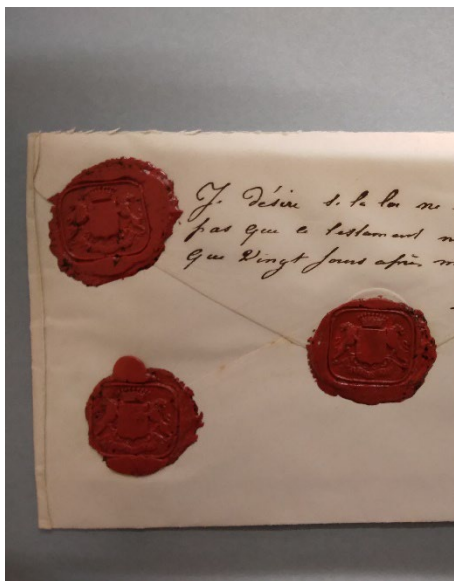 Je désire si la loi ne
pas que ce testament
que Vingt jours après